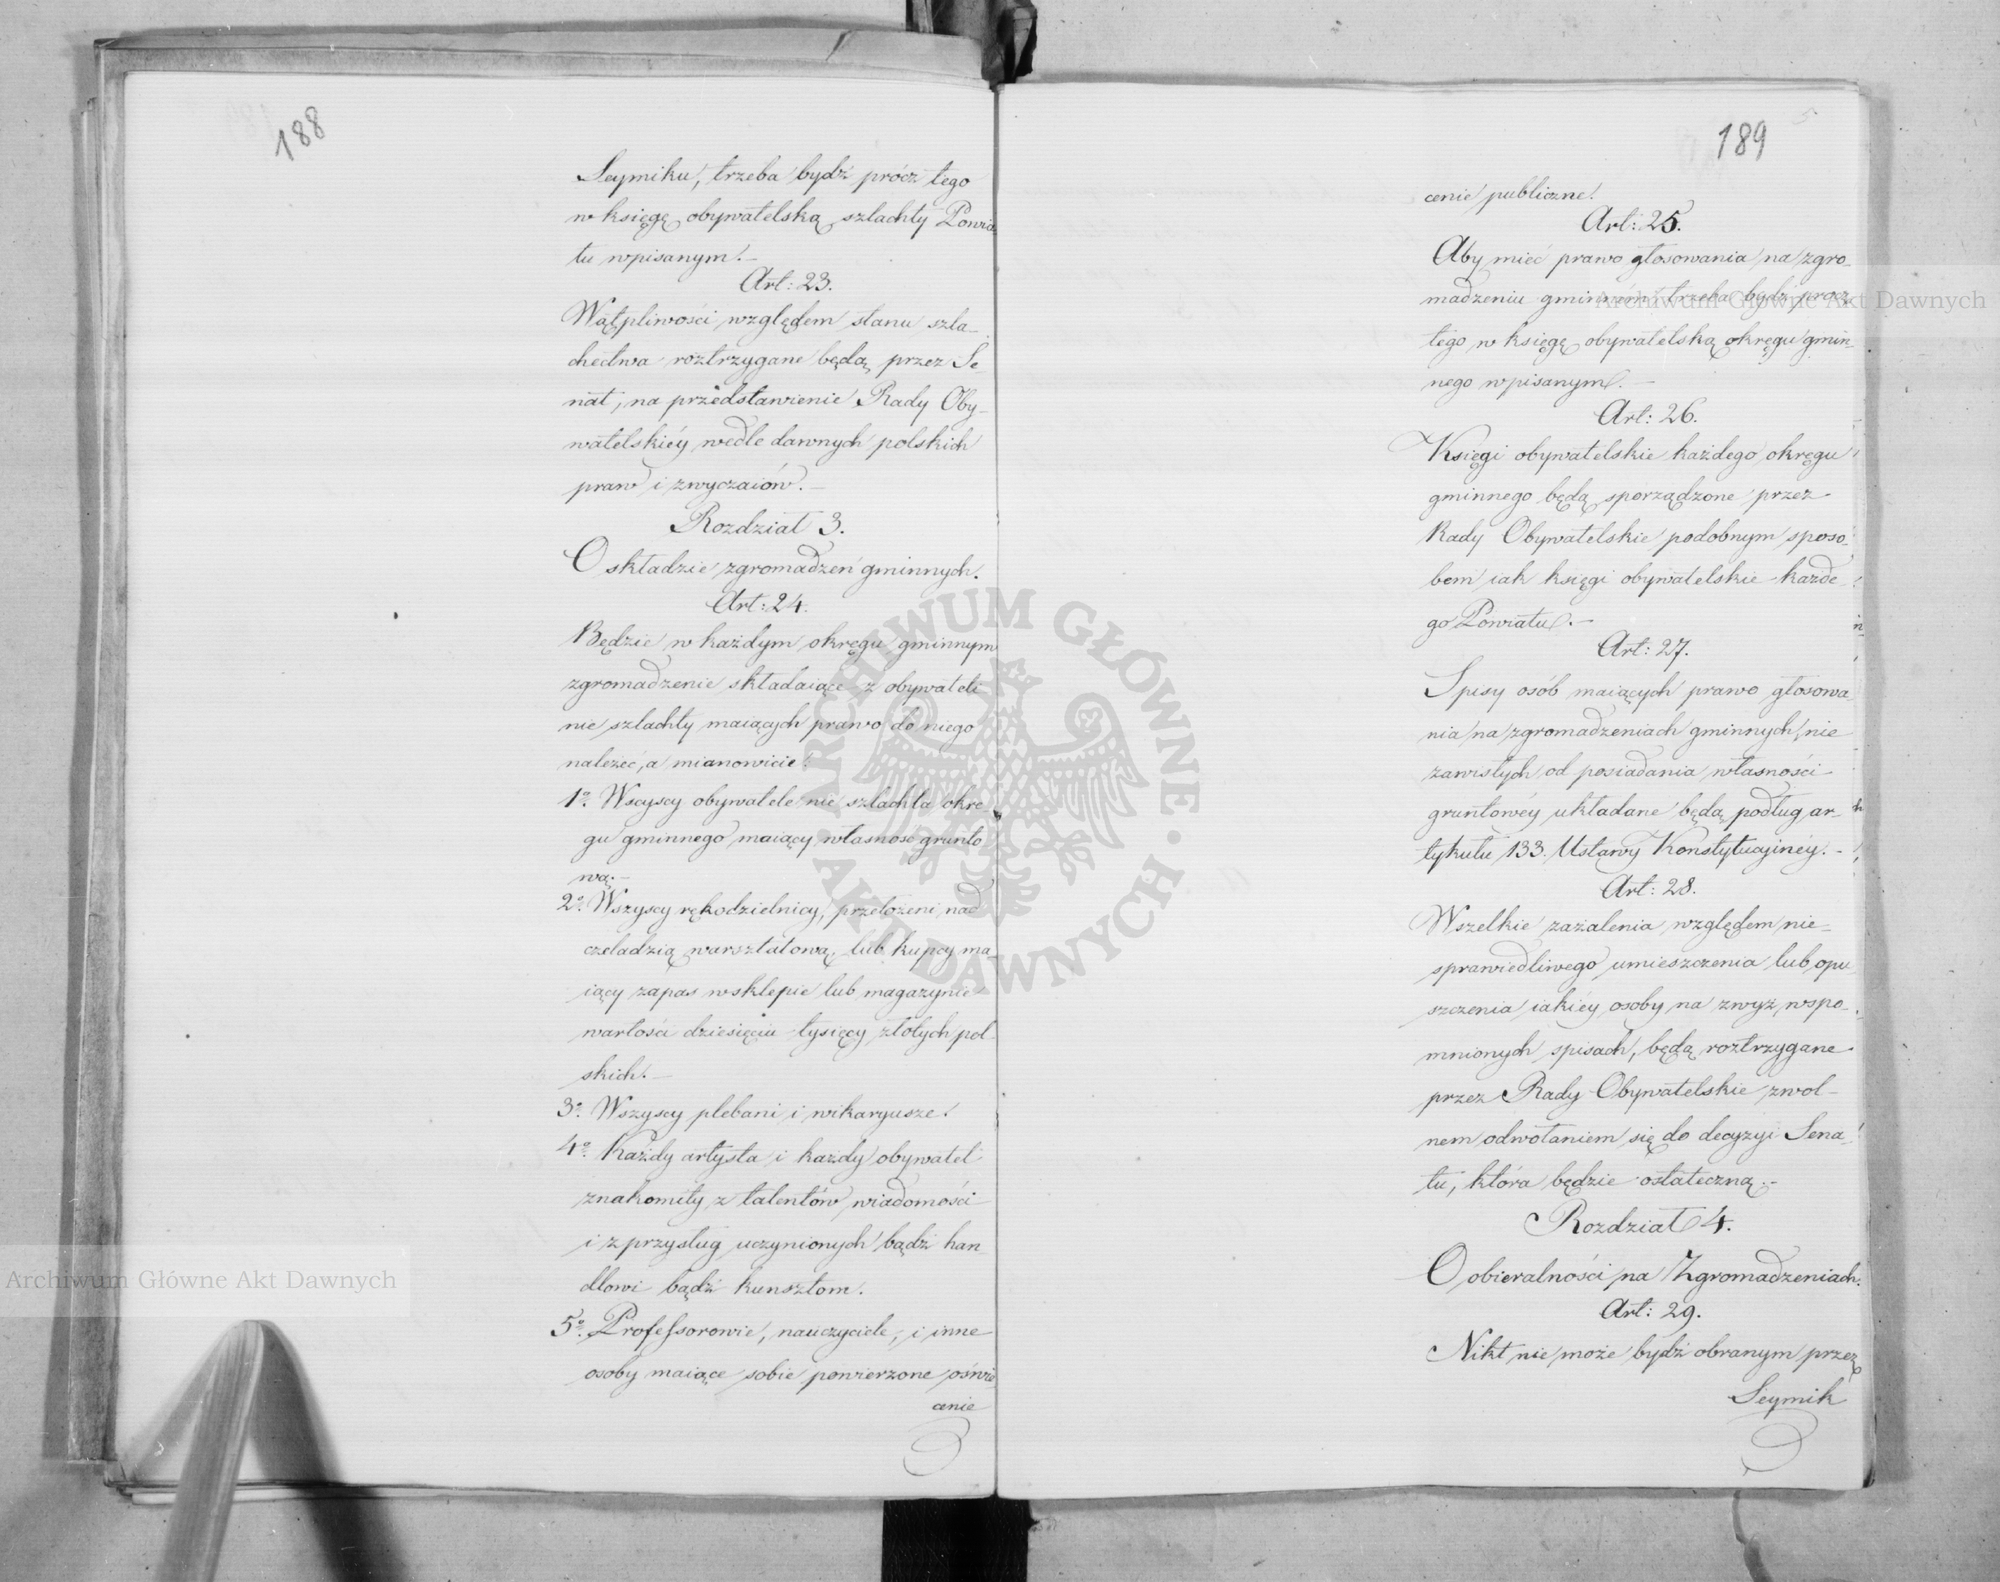 188
Seymiku, trzeba bydź prócz tego
w księgę obywatelską szlachty Powia
tu wpisanym.—
Art: 23.
Wątpliwości względem stanu szla-
chectwa roztrzygane będą przez Se-
nat, na przedstawienie Rady Oby-
watelskiéy wedle dawnych polskich
praw i zwyczaiów.—
Rozdział 3.
O składzie zgromadzeń gminnych.
Art: 24.
Będzie w każdym okręgu gminnym
zgromadzenie składaiące z obywateli
nie szlachty maiących prawo do niego
należeć, a mianowicie:
1º. Wszyscy obywatele nie szlachta okrę
gu gminnego maiący własność grunto
wą.—
2º. Wszyscy rękodzielnicy, przełożeni nad
czeladzią warsztatową, lub kupcy ma
iący zapas w sklepie lub magazynie
wartości dziesięciu tysięcy złotych pol
skich.—
3º. Wszyscy plebani i wikaryusze.
4º. Każdy artysta i każdy obywatel
znakomity z talentów wiadomości
i z przysług uczynionych bądź han-
dlowi bądź kunsztom.
5º. Professorowie, nauczyciele, i inne
osoby maiące sobie powierzone oświe
cenie
189
5
cenie publiczne.
Art: 25.
Aby mieć prawo głosowania na zgro-
madzeniu gminném trzeba bydź prócz
tego w księgę obywatelską okręgu gmin-
nego wpisanym.—
Art: 26.
Księgi obywatelskie każdego okręgu
gminnego będą sporządzone przez
Rady Obywatelskie podobnym sposo-
bem iak księgi obywatelskie każde-
go Powiatu.—
Art: 27.
Spisy osób maiących prawo głosowa
nia na zgromadzeniach gminnych, nie
zawisłych od posiadania własności
gruntowéy układane będą podług ar-
tykułu 133. Ustawy Konstytucyinéy.—
Art: 28.
Wszelkie zażalenia względem nie-
sprawiedliwego umieszczenia lub opu
szczenia iakiéy osoby na zwyż wspo-
mnionych spisach, będą roztrzygane
przez Rady Obywatelskie z wol-
nem odwołaniem się do decyzyi Sena-
tu, która będzie ostateczną.—
Rozdział 4.
O obieralności na Zgromadzeniach.
Art: 29.
Nikt nie może bydź obranym przez
Seymik
ARCHIWUM GŁÓWNE AKT DAWNYCH
Archiwum Główne Akt Dawnych
Archiwum Główne Akt Dawnych